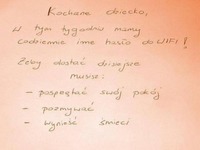 Kochane dziecko,
W tym tygodniu mamy
codziennie inne hasło do WIFI!
Żeby dostać dzisiejsze
musisz:
- posprzątać swój pokój
- pozmywać
- wynieść śmieci